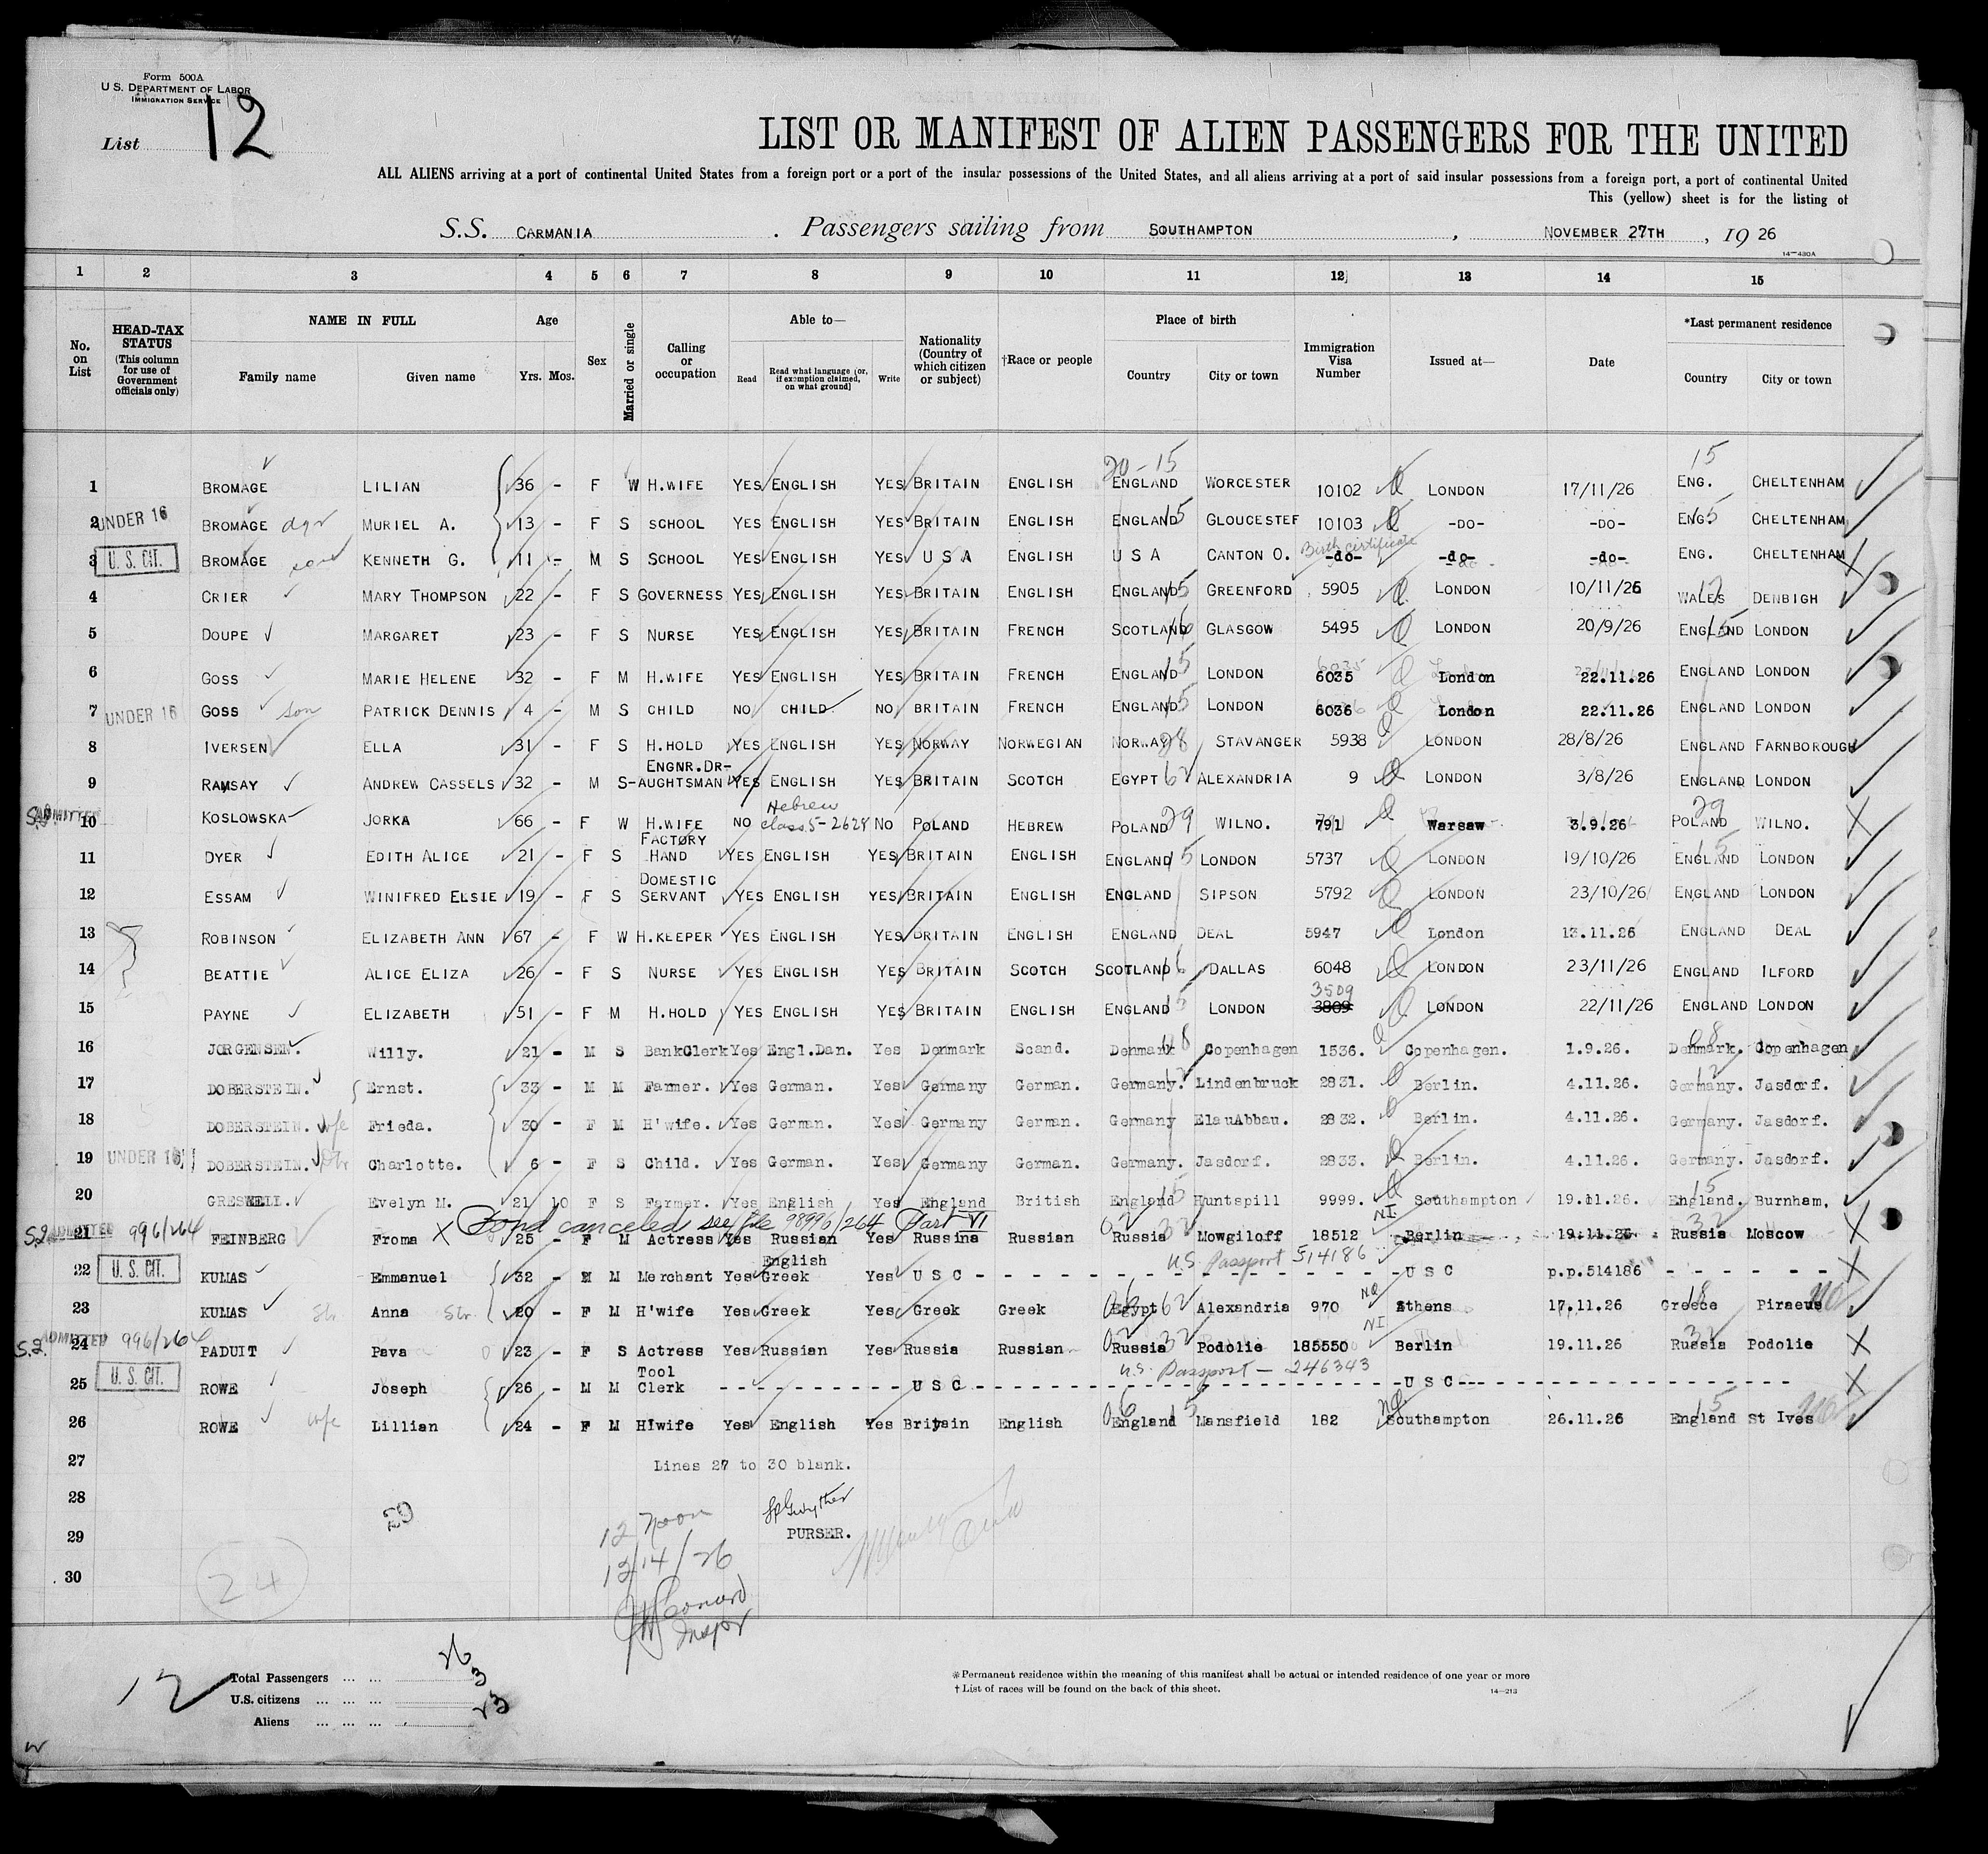 Form 500A
U. S. DEPARTMENT OF LABOR
IMMIGRATION SERVICE
List 12
LIST OR MANIFEST OF ALIEN PASSENGERS FOR THE UNITED
ALL ALIENS arriving at a port of continental United States from a foreign port or a port of the insular possessions of the United States, and all aliens arriving at a port of said insular possessions from a foreign port, a port of continental United
This (yellow) sheet is for the listing of
S.S. CARMANIA . Passengers sailing from SOUTHAMPTON , NOVEMBER 27TH , 19 26
14—430A
1 2 3 4 5 6 7 8 9 10 11 12 13 14 15
No. on List
HEAD-TAX STATUS (This column for use of Government officials only)
NAME IN FULL
Family name Given name
Age
Yrs. Mos.
Sex
Married or single
Calling or occupation
Able to—
Read Read what language (or, if exemption claimed, on what ground) Write
Nationality (Country of which citizen or subject)
†Race or people
Place of birth
Country City or town
Immigration Visa Number
Issued at—
Date
*Last permanent residence
Country City or town
20-15 15
1 BROMAGE LILIAN 36 - F W H.WIFE YES ENGLISH YES BRITAIN ENGLISH ENGLAND WORCESTER 10102 LONDON 17/11/26 ENG. CHELTENHAM
2 UNDER 16 BROMAGE dgr MURIEL A. 13 - F S SCHOOL YES ENGLISH YES BRITAIN ENGLISH ENGLAND 15 GLOUCESTER 10103 -DO- -DO- ENG 15 CHELTENHAM
Birth certificate
3 U. S. CIT. BROMAGE son KENNETH G. 11 - M S SCHOOL YES ENGLISH YES U S A ENGLISH U S A CANTON O. -do- -do- -do- ENG. CHELTENHAM
4 CRIER MARY THOMPSON 22 - F S GOVERNESS YES ENGLISH YES BRITAIN ENGLISH ENGLAND 15 GREENFORD 5905 LONDON 10/11/26 WALES DENBIGH
5 DOUPE MARGARET 23 - F S NURSE YES ENGLISH YES BRITAIN FRENCH SCOTLAND 16 GLASGOW 5495 LONDON 20/9/26 ENGLAND 15 LONDON
6 GOSS MARIE HELENE 32 - F M H.WIFE YES ENGLISH YES BRITAIN FRENCH ENGLAND 15 LONDON 6035 London 22.11.26 ENGLAND LONDON
7 UNDER 16 GOSS son PATRICK DENNIS 4 - M S CHILD NO CHILD NO BRITAIN FRENCH ENGLAND 15 LONDON 6036 London 22.11.26 ENGLAND LONDON
8 IVERSEN ELLA 31 - F S H.HOLD YES ENGLISH YES NORWAY NORWEGIAN NORWAY 28 STAVANGER 5938 LONDON 28/8/26 ENGLAND FARNBOROUGH
ENGNR.DR-
9 RAMSAY ANDREW CASSELS 32 - M S -AUGHTSMAN YES ENGLISH YES BRITAIN SCOTCH EGYPT 62 ALEXANDRIA 9 LONDON 3/8/26 ENGLAND LONDON
Hebrew
10 ADMITTED KOSLOWSKA JORKA 66 - F W H.WIFE NO class.5-2628 NO POLAND HEBREW POLAND 29 WILNO. 791 Warsaw 3.9.26 POLAND 29 WILNO.
FACTORY
11 DYER EDITH ALICE 21 - F S HAND YES ENGLISH YES BRITAIN ENGLISH ENGLAND 15 LONDON 5737 LONDON 19/10/26 ENGLAND 15 LONDON
DOMESTIC
12 ESSAM WINIFRED ELSIE 19 - F S SERVANT YES ENGLISH YES BRITAIN ENGLISH ENGLAND SIPSON 5792 LONDON 23/10/26 ENGLAND LONDON
13 ROBINSON ELIZABETH ANN 67 - F W H.KEEPER YES ENGLISH YES BRITAIN ENGLISH ENGLAND DEAL 5947 London 13.11.26 ENGLAND DEAL
14 BEATTIE ALICE ELIZA 26 - F S NURSE YES ENGLISH YES BRITAIN SCOTCH SCOTLAND 16 DALLAS 6048 LONDON 23/11/26 ENGLAND ILFORD
3509
15 PAYNE ELIZABETH 51 - F M H.HOLD YES ENGLISH YES BRITAIN ENGLISH ENGLAND 15 LONDON 3809 LONDON 22/11/26 ENGLAND LONDON
16 JORGENSEN. Willy. 21 - M S BankClerk Yes Engl.Dan. Yes Denmark Scand. Denmark 08 Copenhagen 1536. Copenhagen. 1.9.26. Denmark. 08 Copenhagen
17 DOBERSTEIN. Ernst. 33 - M M Farmer. Yes German. Yes Germany German. Germany. 12 Lindenbruck 2831. Berlin. 4.11.26. Germany. 12 Jasdorf.
18 DOBERSTEIN. wife Frieda. 30 - F M H'wife. Yes German. Yes Germany German. Germany ElauAbbau. 2832. Berlin. 4.11.26. Germany. Jasdorf.
19 UNDER 16 DOBERSTEIN. Charlotte. 6 - F S Child. Yes German. Yes Germany German. Germany. Jasdorf. 2833. Berlin. 4.11.26. Germany. Jasdorf.
20 GRESWELL. Evelyn M. 21 10 F S Farmer. Yes English Yes England British England 15 Huntspill 9999. Southampton 19.11.26. England. 15 Burnham.
X Bond canceled see file 98996/264 Part VI NI
21 S.I. ADMITTED 996/264 FEINBERG Froma 25 - F M Actress Yes Russian Yes Russina Russian Russia 32 Mowgiloff 18512 Berlin 19.11.26 Russia 32 Moscow
English U.S. Passport 514186
22 U. S. CIT. KUMAS Emmanuel 32 - M M Merchant Yes Greek Yes U S C - - - - U S C p.p.514186 - - - -
NQ
23 KUMAS Anna 20 - F M H'wife Yes Greek Yes Greek Greek Egypt 62 Alexandria 970 Athens 17.11.26 Greece 18 Piraeus
NI
24 S.I. ADMITTED 996/264 PADUIT Pava 23 - F S Actress Yes Russian Yes Russia Russian Russia 32 Podolie 185550 Berlin 19.11.26 Russia 32 Podolie
Tool U.S. Passport — 246343
25 U. S. CIT. ROWE Joseph 26 - M M Clerk - - - - U S C - - - - U S C - - - -
26 ROWE wife Lillian 24 - F M H'wife Yes English Yes Britain English England 15 Mansfield 182 NQ Southampton 26.11.26 England 15 St Ives
27 Lines 27 to 30 blank.
28
29 PURSER.
30
29
12 Noon
12/14/26
Inspr
24
12
Total Passengers ... ... 26
U.S. citizens ... ... ... 3
Aliens ... ... ... 23
*Permanent residence within the meaning of this manifest shall be actual or intended residence of one year or more
† List of races will be found on the back of this sheet.
14—213